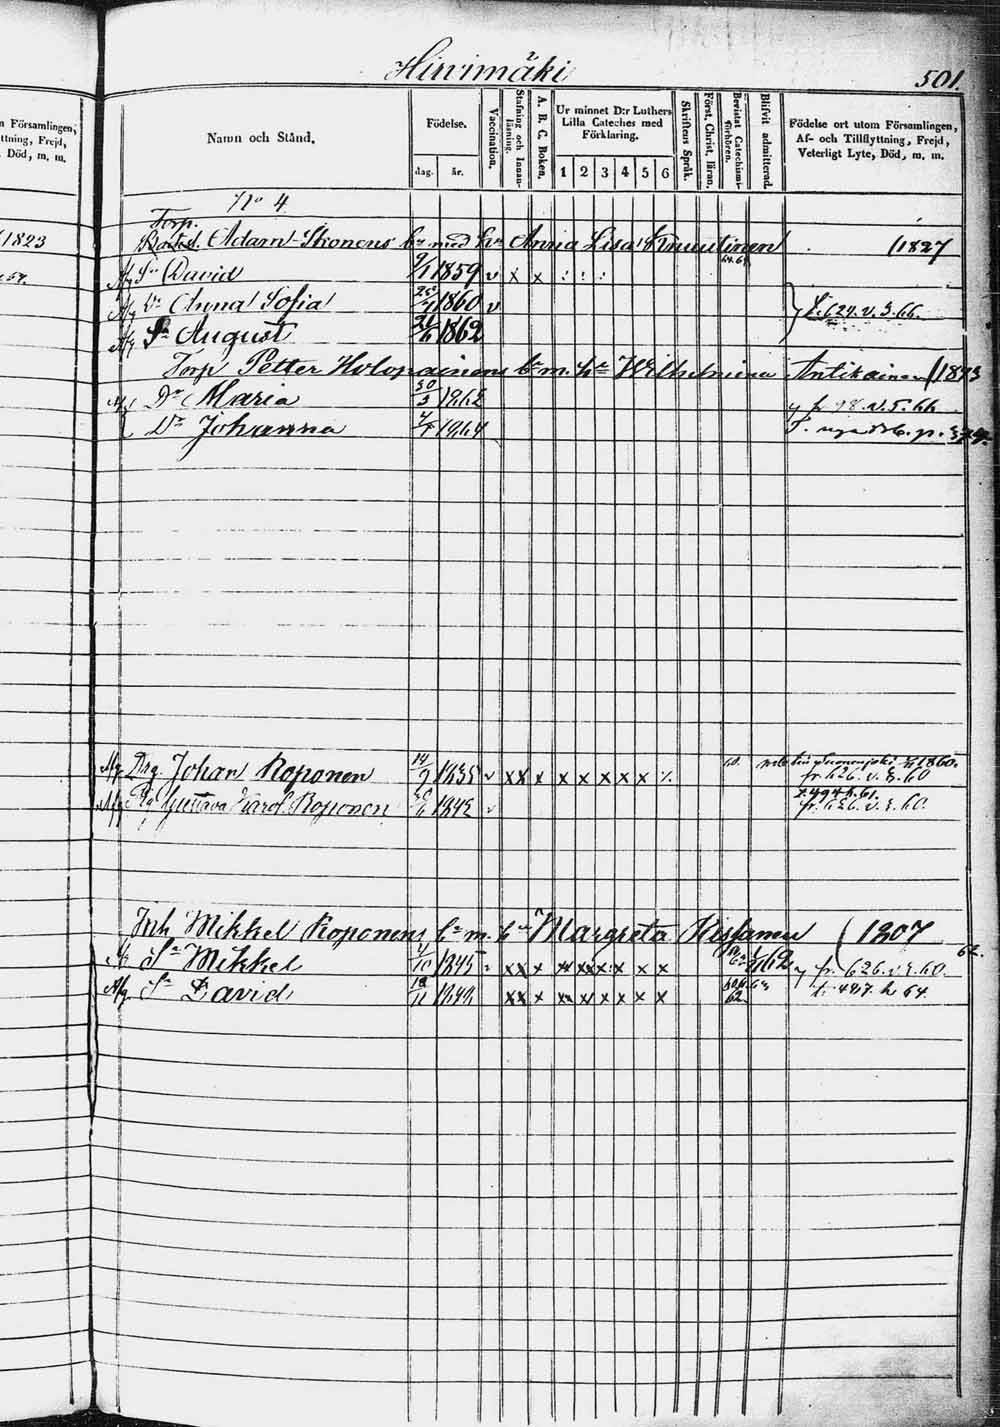 Hirvimäki
501.
n Församlingen,
ttning, Frejd,
Död, m. m.
Namn och Stånd.
Födelse.
dag. år.
Vaccination.
Stafning och Innanläsning.
A. B. C. Boken.
Ur minnet D:r Luthers
Lilla Cateches med
Förklaring.
1 2 3 4 5 6
Skriftens Språk.
Först. Christ. läran.
Bevistat Catechismiförhören.
Blifvit admitterad.
Födelse ort utom Församlingen,
Af- och Tillflyttning, Frejd,
Veterligt Lyte, Död, m. m.
No 4
Torp.
1823
Adam Ikonens bn med hu Anna Lisa Knuutinen (1827
Sn David 9/1 1859 v x x : : :
Dr Anna Sofia 1860 v } f. 624. v. 3. 66
Sn August 1862
Torp Petter Holopainens bn m. hu Wilhelmina Antikainen (1873
Dr Maria 30/3 1862 fr 98. v. 5. 66
Dr Johanna 1864
Drg Johan Roponen 14/9 1835 v xx x x x x x x 60. 1860.
fr. 626. v. 3. 60
Gustava Karol. Roponen 1842 v f. 494 h. 61.
fr. 626. v. 3. 60.
Inh Mikkel Roponens bn m. hu Margreta (1807
Sn Mikkel 1845 xx x x x x x x 62 fr. 626. v. 3. 60. 62.
Sn David xx x x x x x x 62. t. 487. h 64.